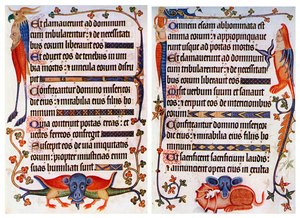 Et clamaverunt ad dominum
cum tribularentur: et de necessitati
bus eorum liberavit eos
Et eduxit eos de tenebris et um
bra mortis: et vincula eorum disru
pit
Confiteantur domino misericor
die eius: et mirabilia eius filiis ho
minum
Quia contrivit portas ereas: et
vectes ferreos confregit
Suscepit eos de via iniquitatis
eorum: propter iniusticias enim
suas humiliati sunt
Omnem escam abhominata est
anima eorum: et appropinquave
runt usque ad portas mortis
Et clamaverunt ad dominum
cum tribularentur: et de necessitati
bus eorum liberavit eos
Misit verbum suum et sanavit
eos: et eripuit eos de interitionibus
eorum
Confiteantur domino misericor
die eius: et mirabilia eius filiis
hominum
Et sacrificent sacrificium laudis:
et annuncient opera eius in exulta